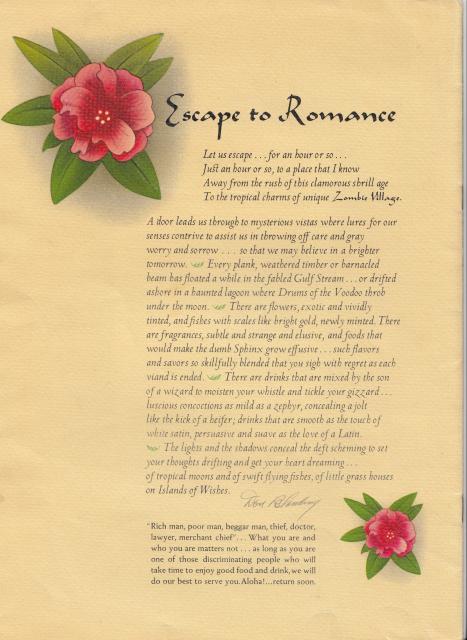 Escape to Romance
Let us escape . . . for an hour or so . . .
Just an hour or so, to a place that I know
Away from the rush of this clamorous shrill age
To the tropical charms of unique Zombie Village.
A door leads us through to mysterious vistas where lures for our
senses contrive to assist us in throwing off care and gray
worry and sorrow . . . so that we may believe in a brighter
tomorrow. Every plank, weathered timber or barnacled
beam has floated a while in the fabled Gulf Stream . . . or drifted
ashore in a haunted lagoon where Drums of the Voodoo throb
under the moon. There are flowers, exotic and vividly
tinted, and fishes with scales like bright gold, newly minted. There
are fragrances, subtle and strange and elusive, and foods that
would make the dumb Sphinx grow effusive . . . such flavors
and savors so skillfully blended that you sigh with regret as each
viand is ended. There are drinks that are mixed by the son
of a wizard to moisten your whistle and tickle your gizzard . . .
luscious concoctions as mild as a zephyr, concealing a jolt
like the kick of a heifer; drinks that are smooth as the touch of
white satin, persuasive and suave as the love of a Latin.
The lights and the shadows conceal the deft scheming to set
your thoughts drifting and get your heart dreaming . . .
of tropical moons and of swift flying fishes, of little grass houses
on Islands of Wishes.
"Rich man, poor man, beggar man, thief, doctor,
lawyer, merchant chief" . . . What you are and
who you are matters not . . . as long as you are
one of those discriminating people who will
take time to enjoy good food and drink, we will
do our best to serve you. Aloha! . . . return soon.